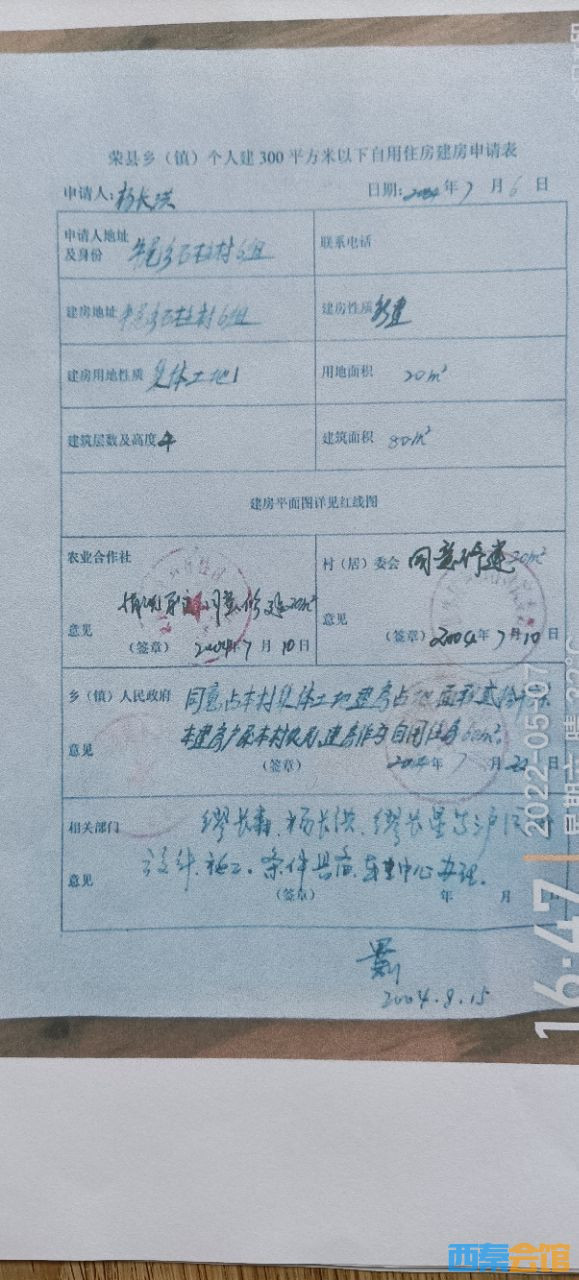 荣县乡（镇）个人建300平方米以下自用住房建房申请表
申请人：杨长洪 日期：2004年7月6日
申请人地址及身份 乡石柱村6组 联系电话
建房地址 乡石柱村6组 建房性质 新建
建房用地性质 集体土地 用地面积 20m²
建筑层数及高度 4 建筑面积 80m²
建房平面图详见红线图
农业合作社 村（居）委会 同意修建20m²
情况属实同意修建20m²
意见 意见
（签章）2004年7月10日 （签章）2004年7月10日
乡（镇）人民政府 同意占本村集体土地建房占地面积贰拾
意见 本建房户系本村农民，建房作为自用住房
（签章） 2004年7月22日
相关部门 缪长寿、杨长洪、缪长
意见 设计、施工、条件具备，中心办理。
（签章） 年 月 日
2004.8.15
16:47
2022-05-07
星期六 晴 22℃
西秦会馆